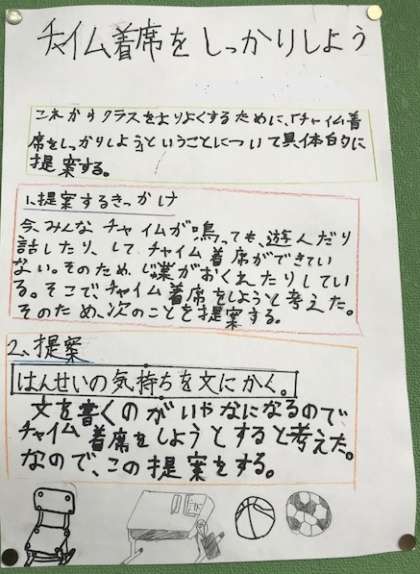 チャイム着席をしっかりしよう
これからクラスをよりよくするために、「チャイム着
席をしっかりしよう」ということについて具体的に
提案する。
1.提案するきっかけ
今、みんなチャイムが鳴っても、遊んだり
話したり、して、チャイム着席ができてい
ない。そのため、じ業がおくれたりしてい
る。そこで、チャイム着席をしようと考えた。
そのため、次のことを提案する。
2、提案
はんせいの気持ちを文にかく。
文を書くのがいやなになるので、
チャイム着席をしようとすると考えた。
なので、この提案をする。